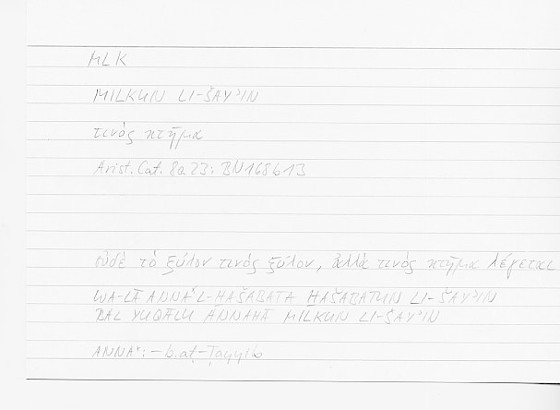 MLK
MILKUN LI-ŠAYʾIN
τινός κτῆμα
Arist. Cat. 8a23: BN168b13
οὐδὲ τὸ ξύλον τινός ξύλον, ἀλλά τινός κτῆμα λέγεται
WA-LĀ ANNAʾL-ḪAŠABATA ḪAŠABATUN LI-ŠAYʾIN
BAL YUQĀLU ANNAHĀ MILKUN LI-ŠAYʾIN
ANNAʾ: – b.aṭ-Ṭayyib